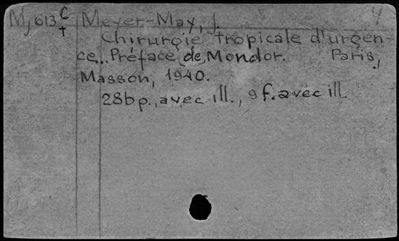 M, 613 C† Meyer-May, J.
Chirurgie tropicale d'urgen-
ce... Préface de Mondor. Paris,
Masson, 1940.
286 p., avec ill., 9 f. avec ill.